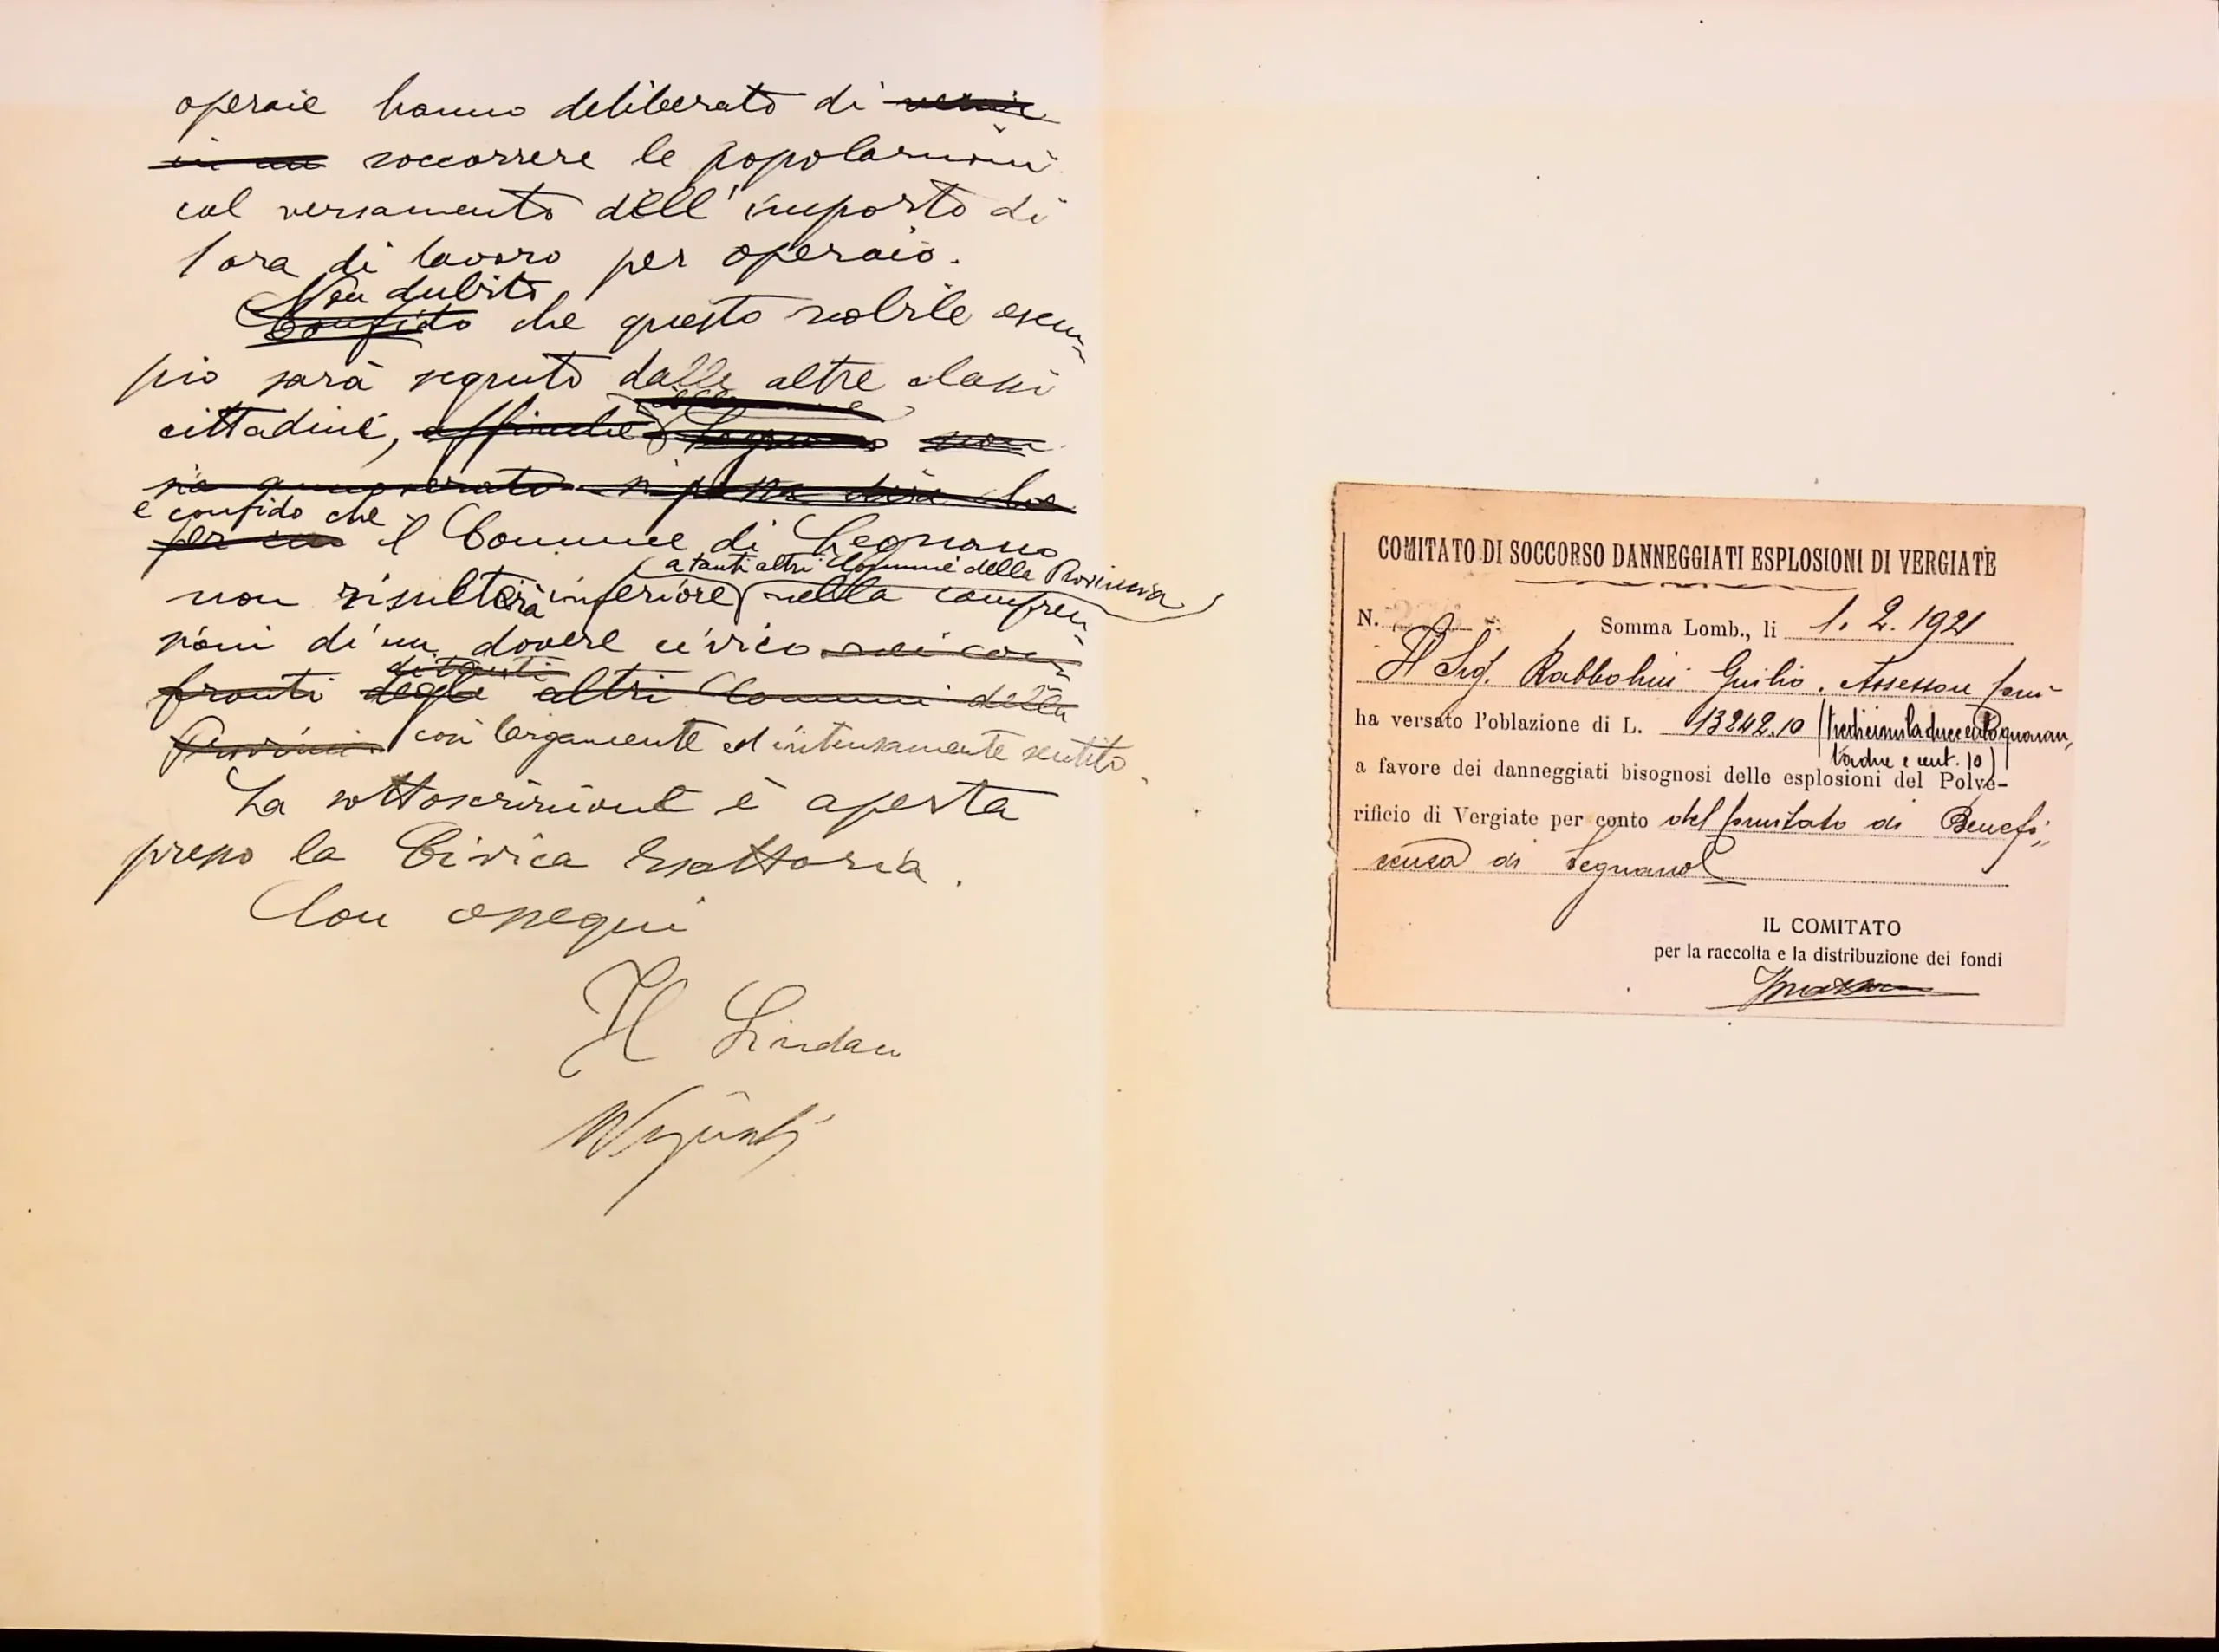 operaie hanno deliberato di venire
in un soccorrere le popolazioni
col versamento dell'importo di
1 ora di lavoro per operaio.
Non dubito
Confido che questo nobile esem-
pio sarà seguito dalle altre classi
cittadine, affinché Legnano non
sia
e confido che
per cui il Comune di Legnano
a tanti altri Comuni della Provincia
non risulterà inferiore nella compren-
sioni di un dovere civico nei con-
di tanti
fronti degli altri Comuni della
Provincia così largamente ed intensamente sentito
La sottoscrizione è aperta
presso la Civica Esattoria.
Con ossequi
Il Sindaco
COMITATO DI SOCCORSO DANNEGGIATI ESPLOSIONI DI VERGIATE
N. Somma Lomb., li 1. 2. 1921
Il Sig. Rabbolini Giulio, Assessore
ha versato l'oblazione di L. 13242.10 (tredicimiladuecentoquaran,
tadue e cent. 10)
a favore dei danneggiati bisognosi delle esplosioni del Polve-
rificio di Vergiate per conto del Comitato di Benefi,,
cenza di Legnano
IL COMITATO
per la raccolta e la distribuzione dei fondi